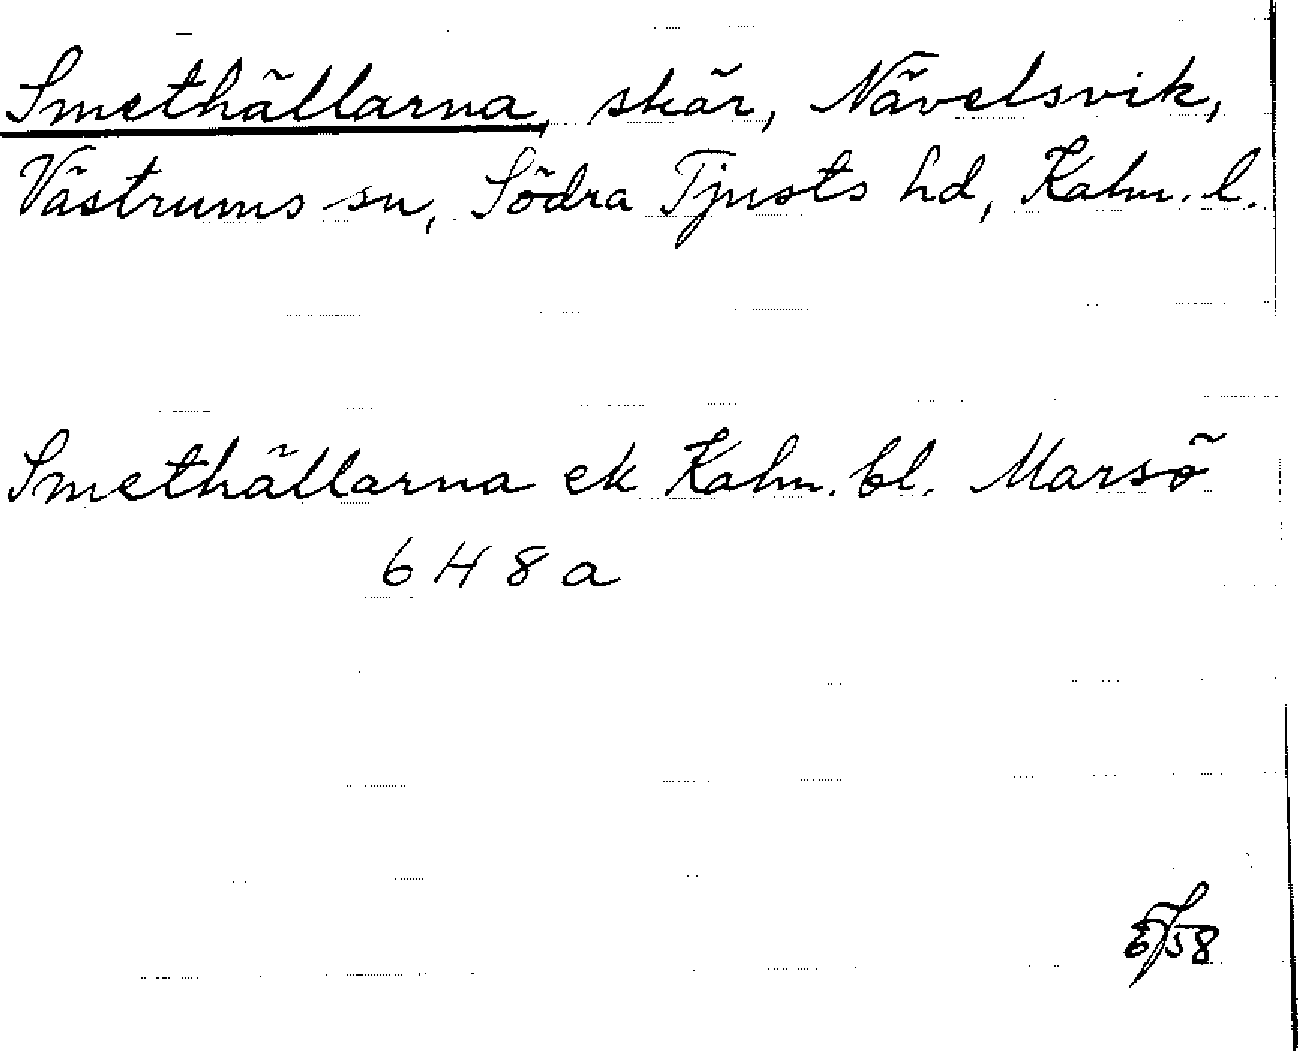 Smethällarna, skär, Nävelsvik,
Västrums sn, Södra Tjusts hd, Kalm. l.
Smethällarna ek Kalm. bl. Marsö
6 H 8 a